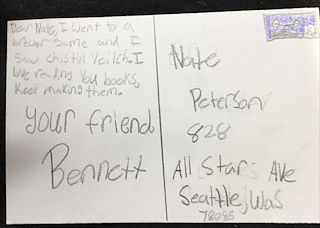 Dear Nate, I went to a
brewer game and I
saw chistin Yeiltch. I
love reading you books,
Keep making them.
your friend
Bennett
Nate
Peterson
828
All Star Ave
Seattle, Was
78085